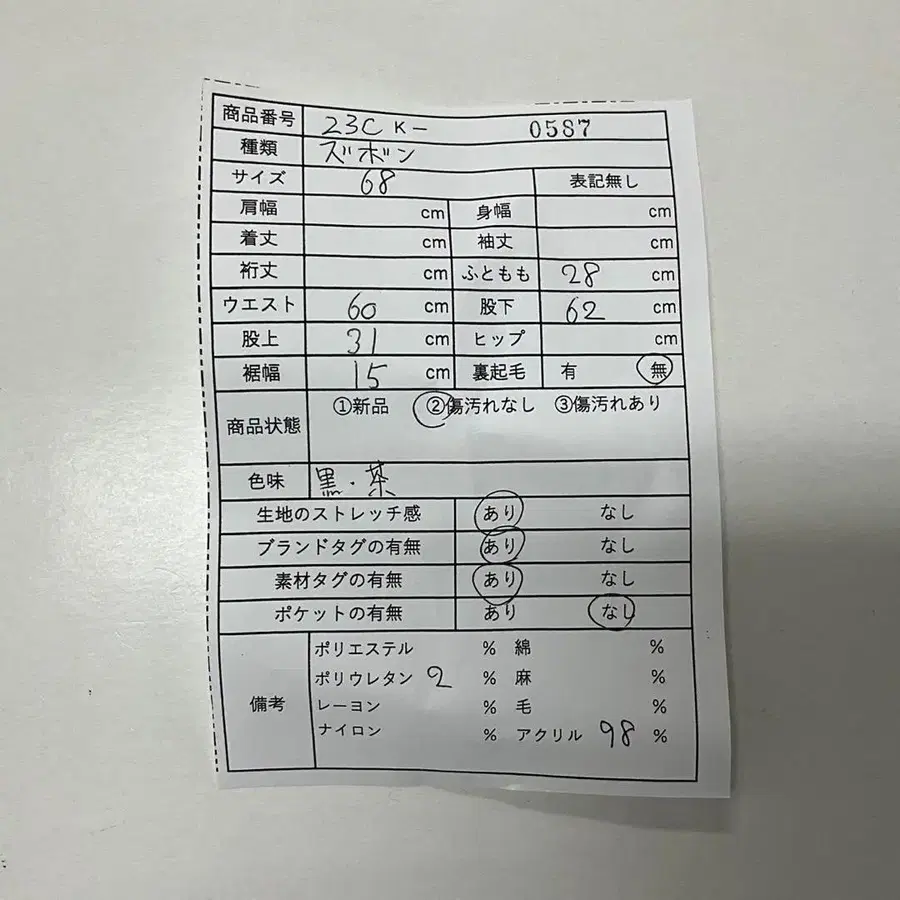 商品番号 23C K- 0587
種類 ズボン
サイズ 68 表記無し
肩幅 cm 身幅 cm
着丈 cm 袖丈 cm
裄丈 cm ふともも 28 cm
ウエスト 60 cm 股下 62 cm
股上 31 cm ヒップ cm
裾幅 15 cm 裏起毛 有 無
商品状態 ①新品 ②傷汚れなし ③傷汚れあり
色味 黒・茶
生地のストレッチ感 あり なし
ブランドタグの有無 あり なし
素材タグの有無 あり なし
ポケットの有無 あり なし
備考 ポリエステル % 綿 %
ポリウレタン 2 % 麻 %
レーヨン % 毛 %
ナイロン % アクリル 98 %